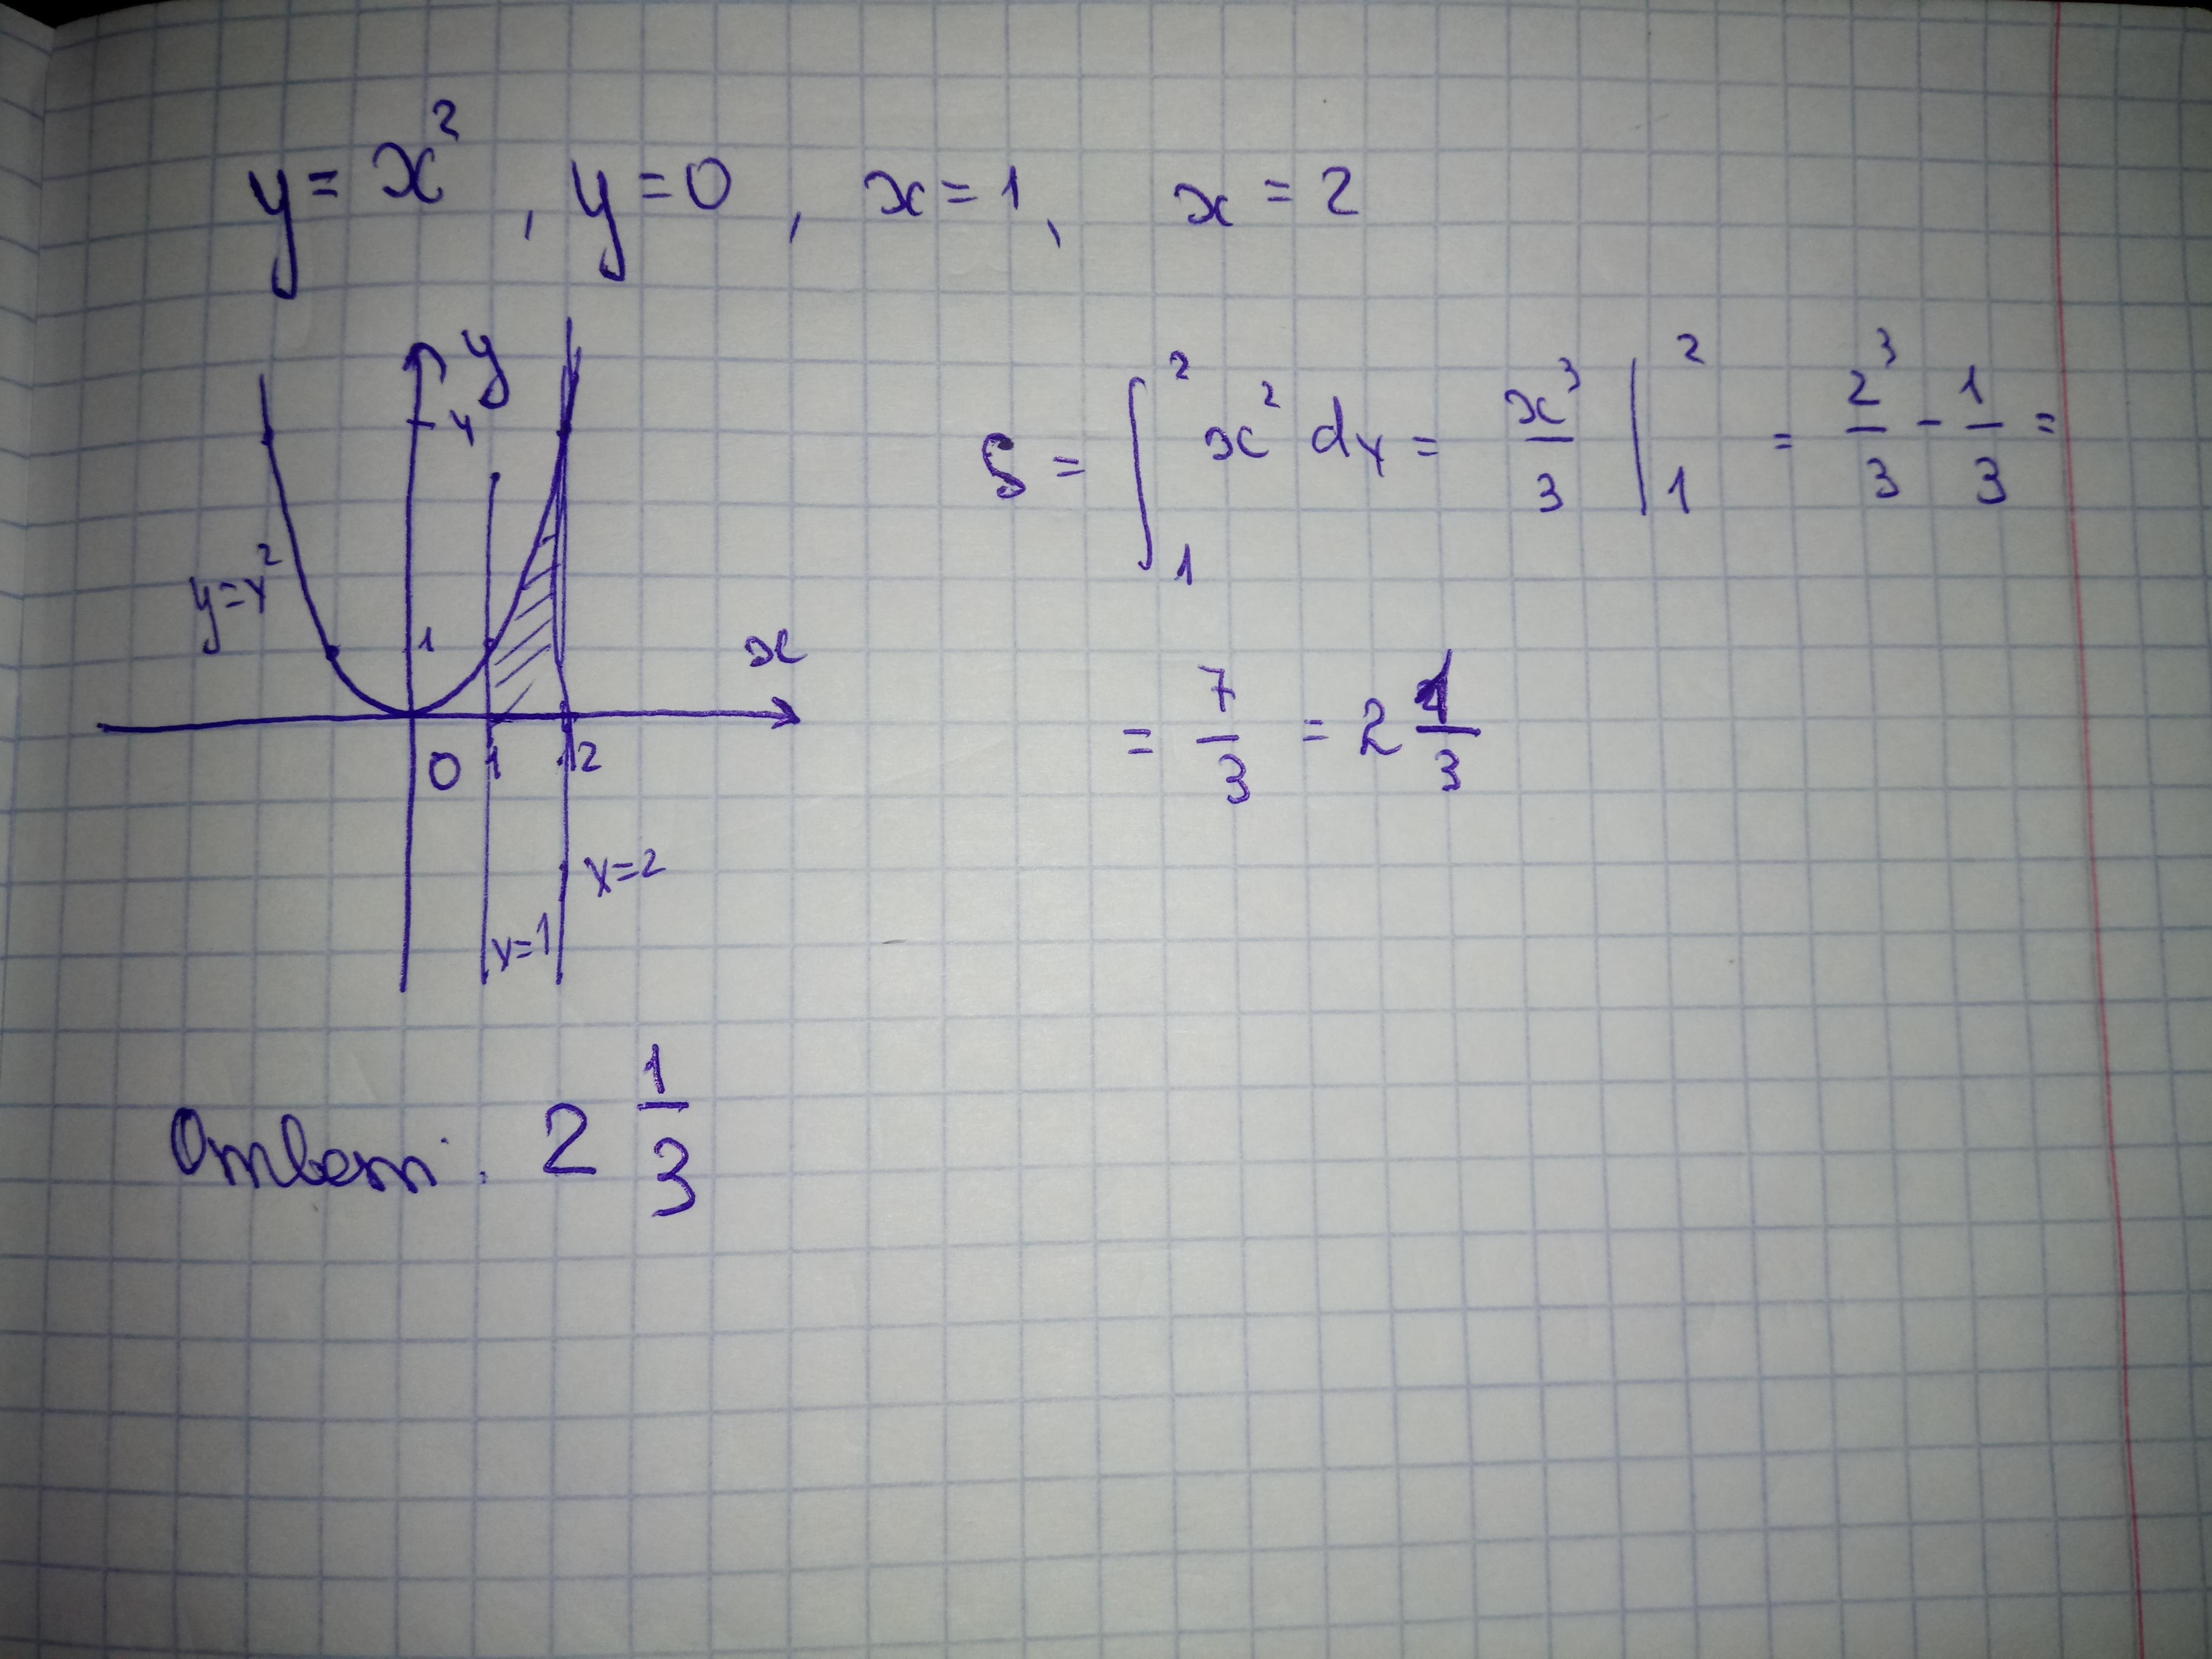 y = x² , y = 0 , x = 1 , x = 2
y
4
y=x²
1
x
0 1 2
x=2
x=1
S = ∫₁² x² dx = x³/3 |₁² = 2³/3 - 1/3 =
= 7/3 = 2 1/3
Ответ: 2 1/3